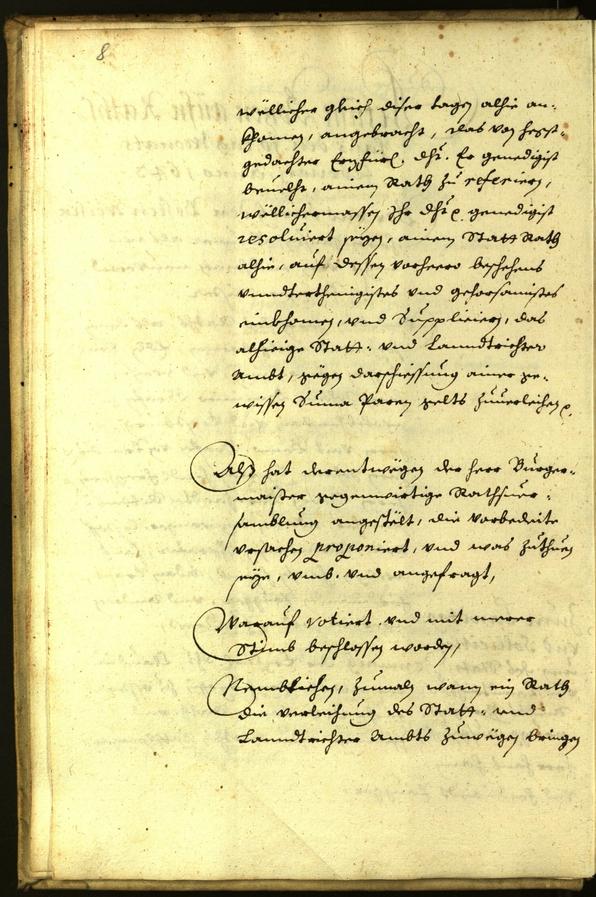 8
wöllicher gleich diser tagen alhie an-
khomen, angebracht, das von hegst-
gedachter Erzfürl. Dhr. Er genedigist
beuelht, ainem Rath zu referiern,
wöllichermassen Ihr Dhrt. genedigist
resoluiert seyen, ainem Statt Rath
alhie, auf dessen vorheero beschehens
vnndterthenigistes vnd gehorsamistes
einkhomen, vnd Supplicieren, das
alhieige Statt- vnd Lanndtrichter
Ambt, gegen darschiessung ainer ge-
wissen Suma Paren gelts zuuerleihen
Alß hat derentwegen der herr Burger-
maister gegenwirtige Rathsuer-
samblung angestelt, die vorbedeite
vrsachen proponiert, vnd was zuthuen
seye, vmb- vnd angefragt,
Warauf votiert vnd mit merer
Stimb beschlossen worden,
Nemblichen, zumaln wann ein Rath
die verleihung des Statt- vnd
Lanndtrichter Ambts zuwegen bringen